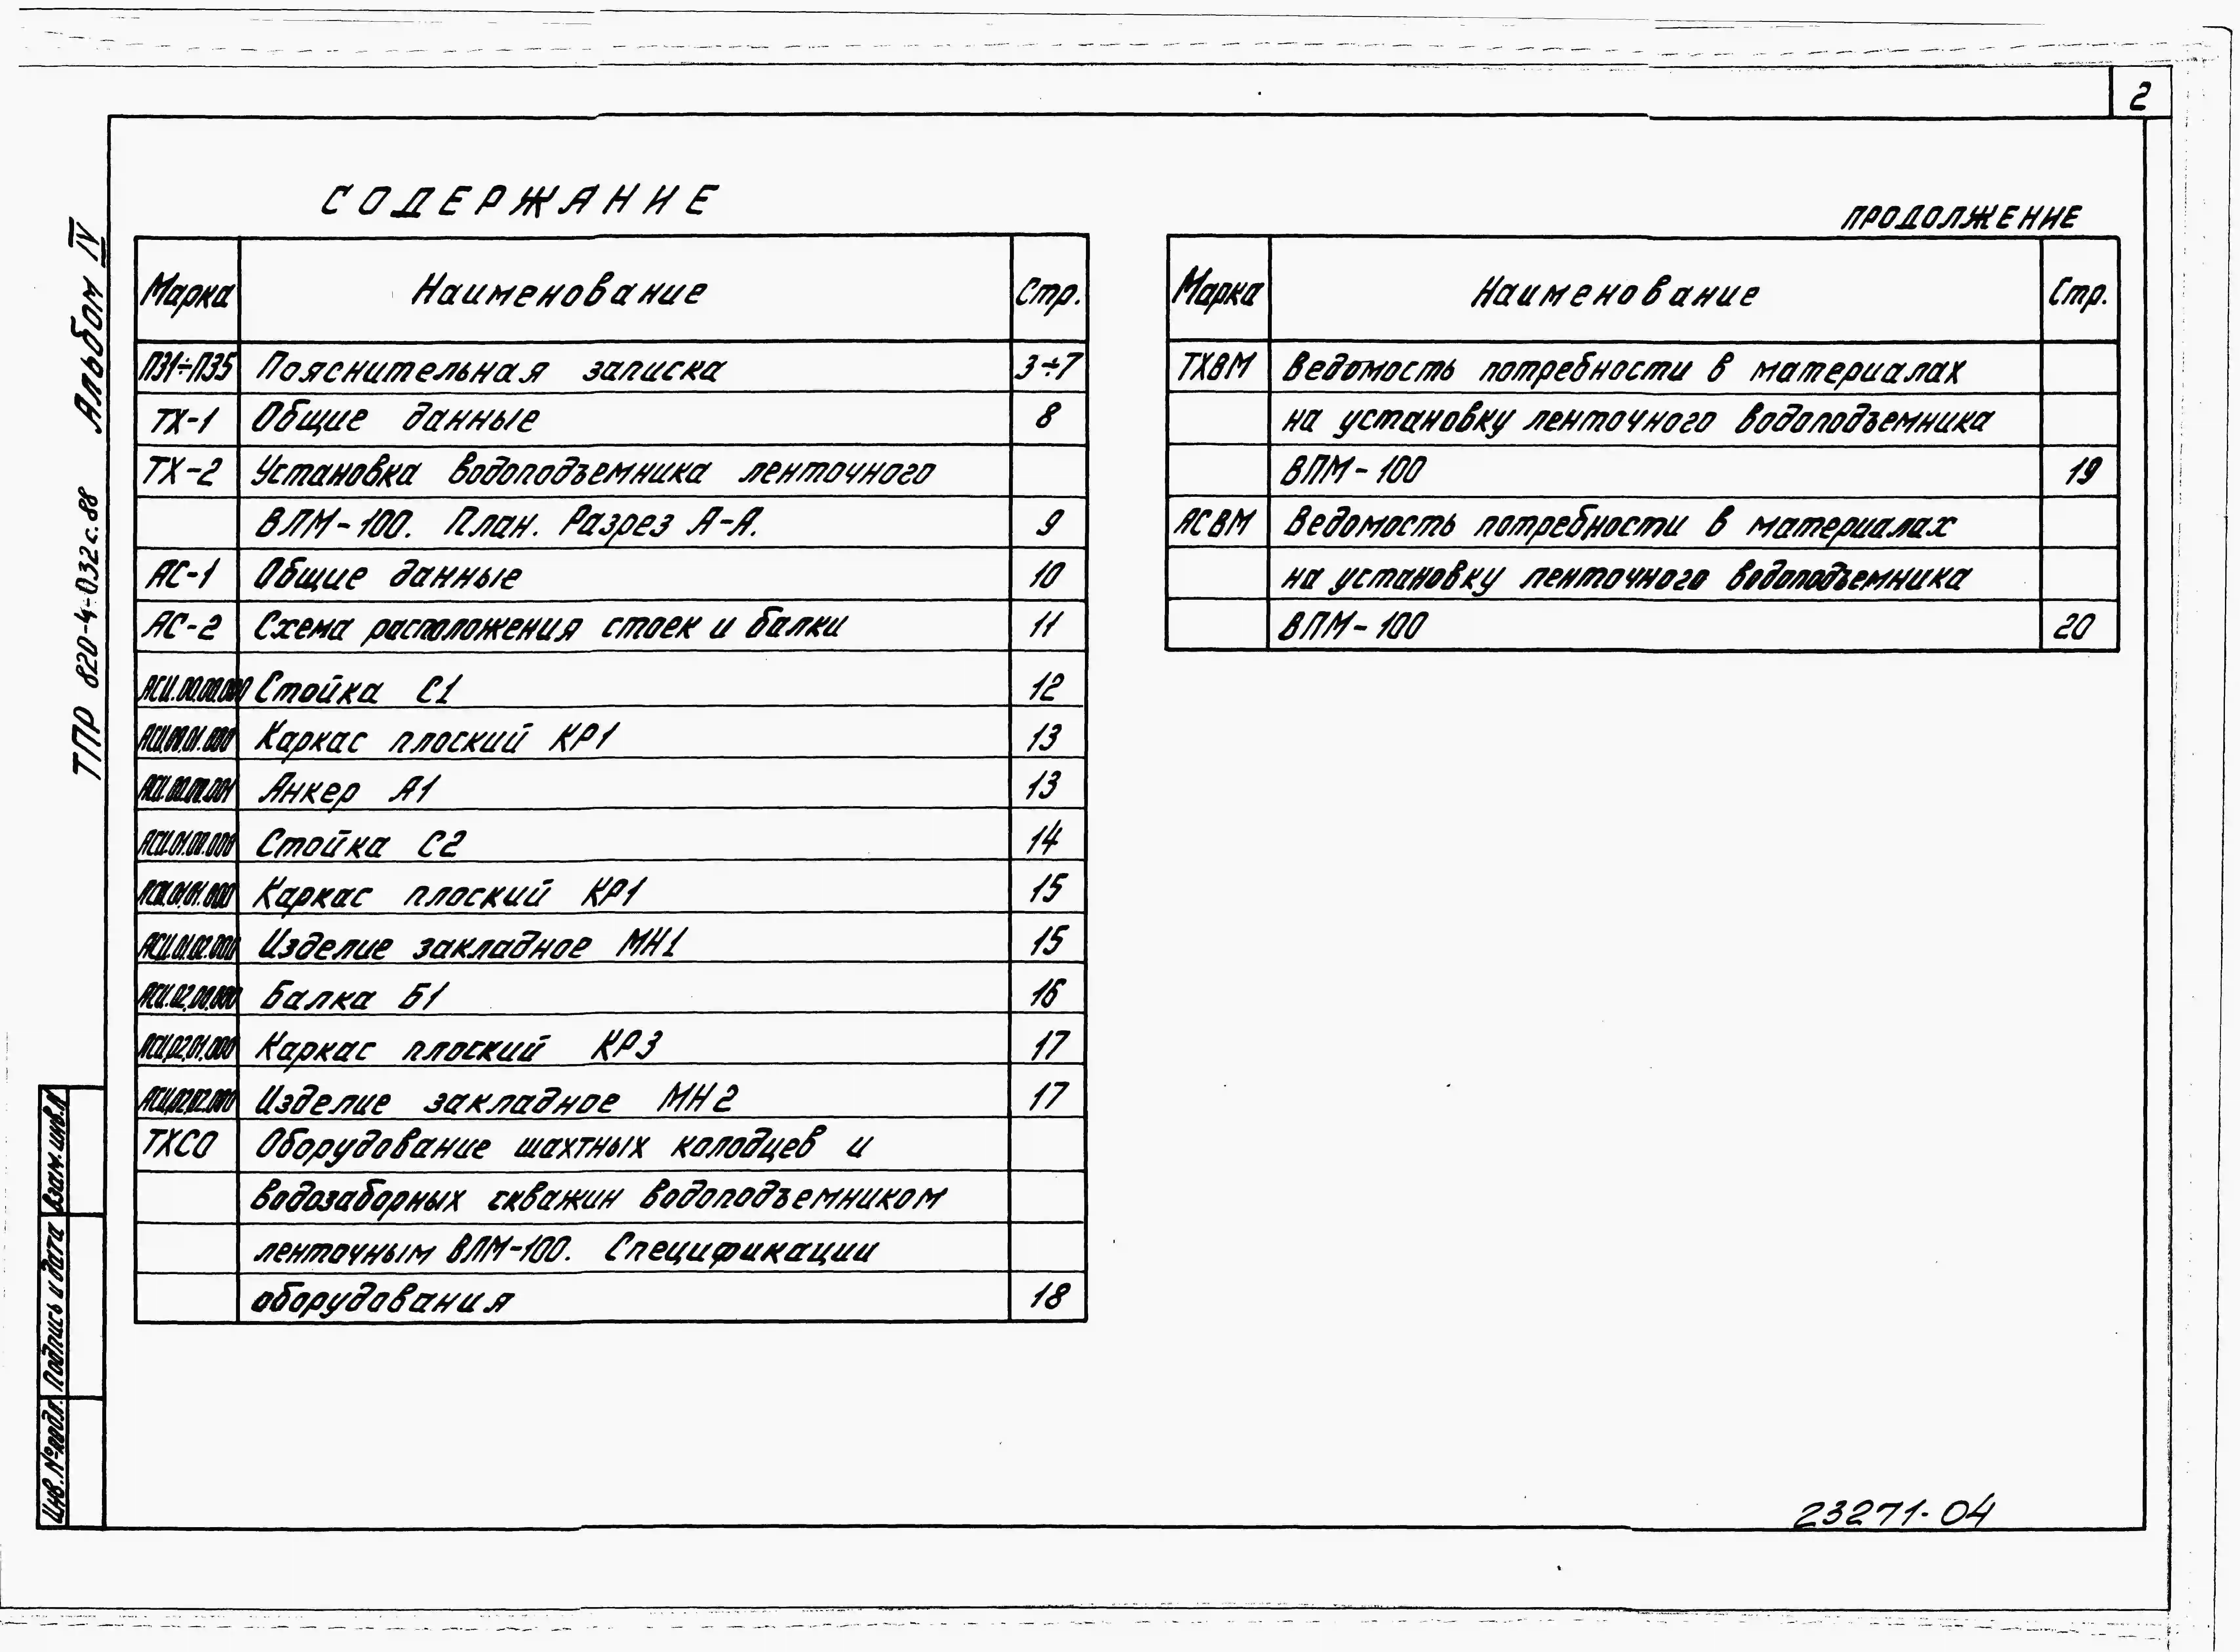 2
СОДЕРЖАНИЕ
Марка Наименование Стр.
ПЗ1÷ПЗ5 Пояснительная записка 3÷7
ТХ-1 Общие данные 8
ТХ-2 Установка водоподъемника ленточного
ВЛМ-100. План. Разрез А-А. 9
АС-1 Общие данные 10
АС-2 Схема расположения стоек и балки 11
АСИ.00.00.000 Стойка С1 12
АСИ.00.01.000 Каркас плоский КР1 13
АСИ.00.00.001 Анкер А1 13
АСИ.01.00.000 Стойка С2 14
АСИ.01.01.000 Каркас плоский КР1 15
АСИ.01.02.000 Изделие закладное МН1 15
АСИ.02.00.000 Балка Б1 16
АСИ.02.01.000 Каркас плоский КР3 17
АСИ.02.02.000 Изделие закладное МН2 17
ТХСО Оборудование шахтных колодцев и
водозаборных скважин водоподъемником
ленточным ВЛМ-100. Спецификации
оборудования 18
ПРОДОЛЖЕНИЕ
Марка Наименование Стр.
ТХВМ Ведомость потребности в материалах
на установку ленточного водоподъемника
ВЛМ-100 19
АСВМ Ведомость потребности в материалах
на установку ленточного водоподъемника
ВЛМ-100 20
ТПР 820-4-032с.88 Альбом IV
Взам.инв.№
Подпись и дата
Инв.№подл.
23271-04